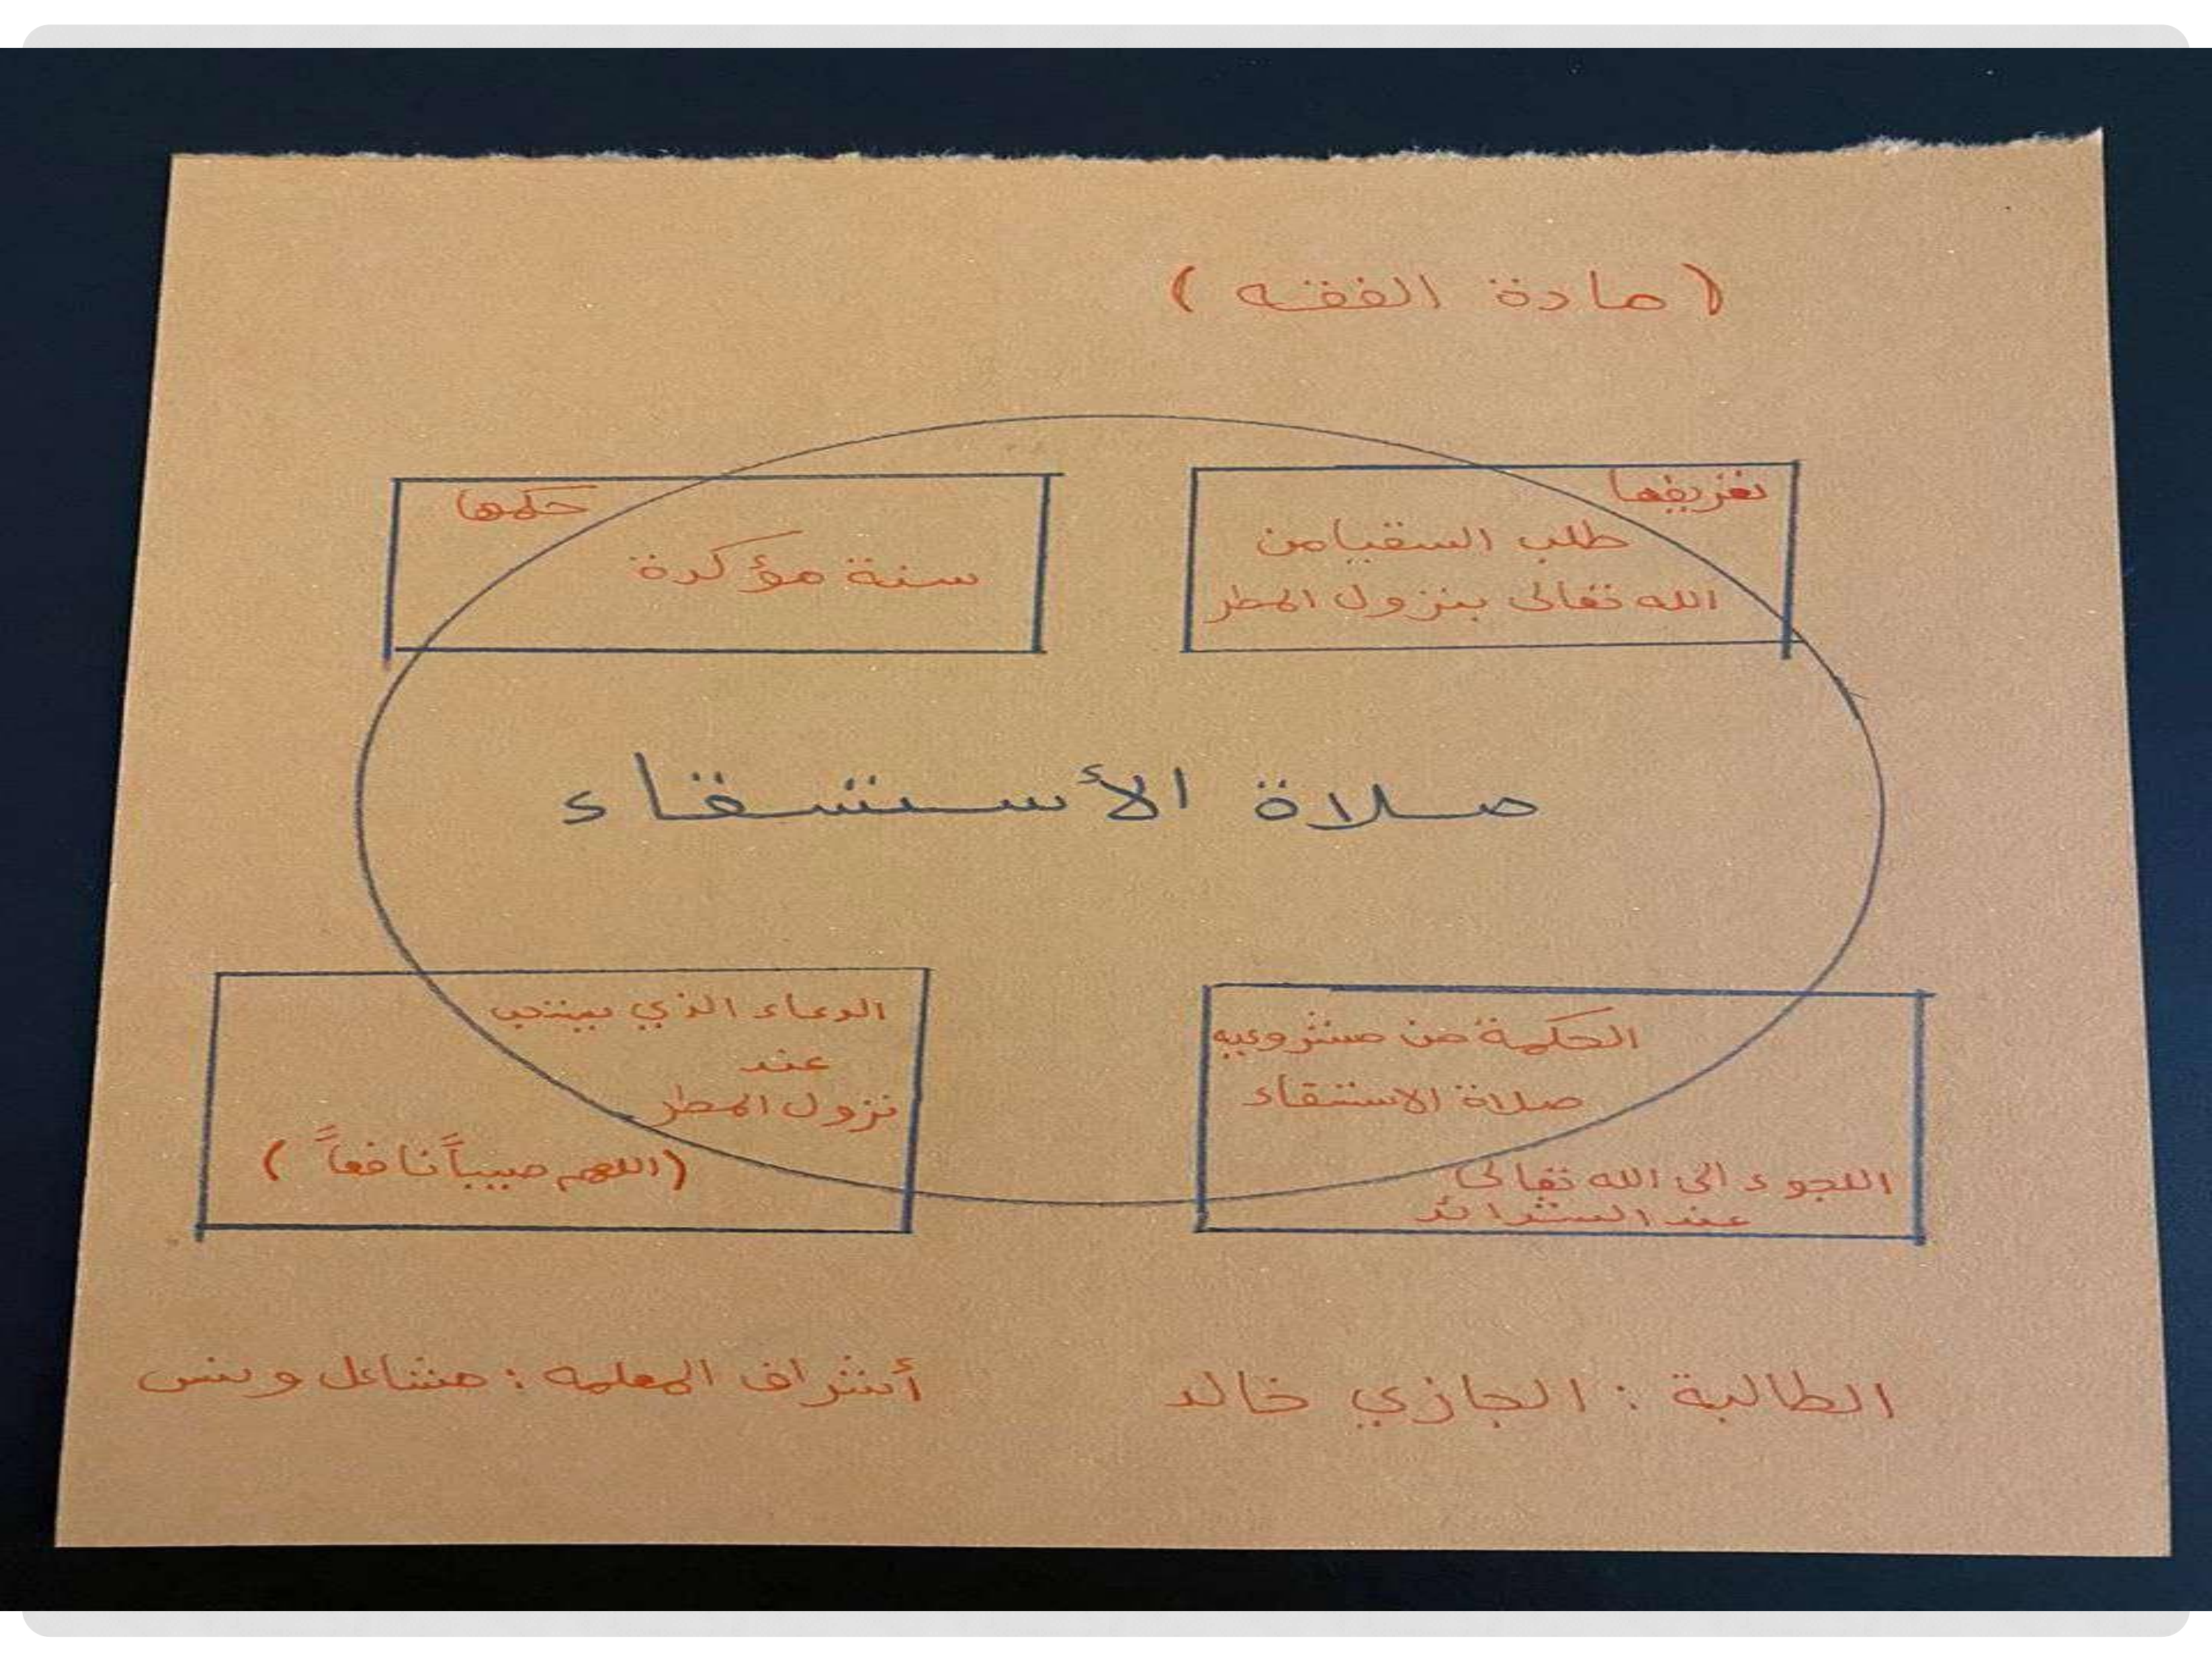 ( مادة الفقه )
تعريفها
طلب السقيا من
الله تعالى بنزول المطر
حكمها
سنة مؤكدة
صلاة الأستسقاء
الحكمة من مشروعيه
صلاة الاستسقاء
اللجوء الى الله تعالى
عند الشدائد
الدعاء الذي
عند
نزول المطر
(اللهم صيباً نافعاً )
الطالبة : الجازي خالد
أشراف المعلمه : مشاعل